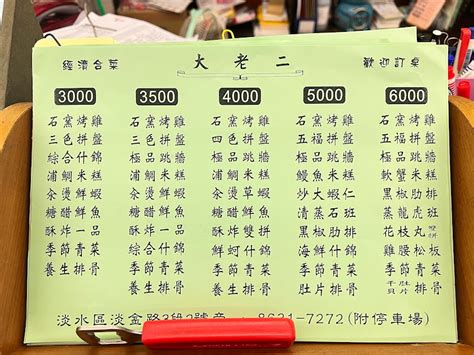 經濟合菜
大老二
歡迎訂桌
3000
石窯烤雞
三色拼盤
綜合什錦
浦鯛米糕
汆燙鮮蝦
糖醋鮮魚
酥炸一品
季節青菜
養生排骨
3500
石窯烤雞
三色拼盤
極品跳牆
浦鯛米糕
汆燙鮮蝦
糖醋鮮魚
酥炸一品
綜合什錦
季節青菜
養生排骨
4000
石窯烤雞
四色拼盤
極品跳牆
浦鯛米糕
汆燙鮮蝦
糖醋鮮魚
酥炸雙拼
鮮蚵什錦
季節青菜
養生排骨
5000
石窯烤雞
五福拼盤
極品跳牆
浦鯛米糕
炒大蝦仁
清蒸石班
黑椒肋排
海鮮什錦
季節青菜
肚片排骨
6000
石窯烤雞
五福拼盤
極品跳牆
軟蟹米糕
黑椒肋排
清蒸龍虎班
花枝丸雙拼
雞腰松板
季節青菜
干貝肚片排骨
淡水區淡金路3段2號旁
8631-7272(附停車場)